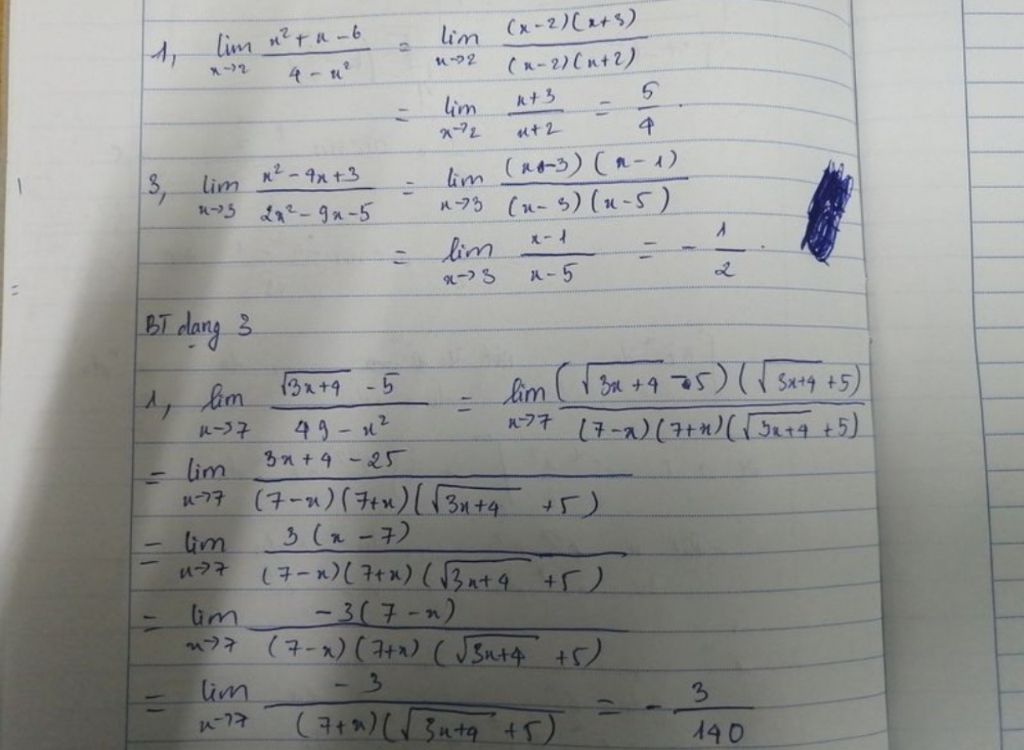 1, lim x→2 (x² + x - 6)/(4 - x²) = lim x→2 ((x-2)(x+3))/((x-2)(x+2))
= lim x→2 (x+3)/(x+2) = 5/4.
3, lim x→3 (x² - 4x + 3)/(2x² - 9x - 5) = lim x→3 ((x-3)(x-1))/((x-3)(x-5))
= lim x→3 (x-1)/(x-5) = - 1/2.
BT dạng 3
1, lim x→7 (√(3x+4) - 5)/(49 - x²) = lim x→7 ((√(3x+4) - 5)(√(3x+4) + 5))/((7-x)(7+x)(√(3x+4) + 5))
= lim x→7 (3x + 4 - 25)/((7-x)(7+x)(√(3x+4) + 5))
= lim x→7 (3(x - 7))/((7-x)(7+x)(√(3x+4) + 5))
= lim x→7 (-3(7-x))/((7-x)(7+x)(√(3x+4) + 5))
= lim x→7 (-3)/((7+x)(√(3x+4) + 5)) = - 3/140